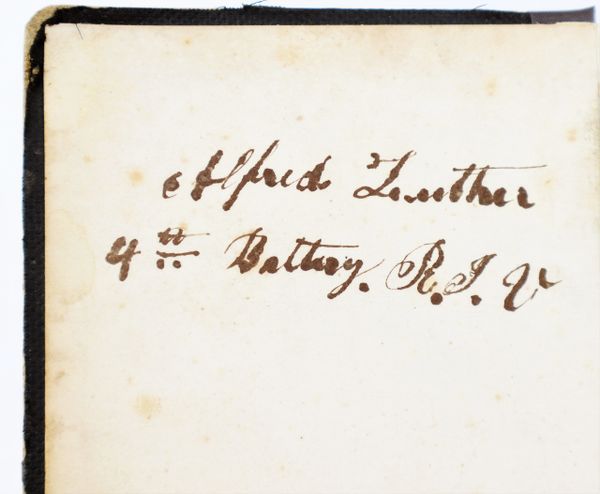 Alfred Luther
4th Battery. R.I.V